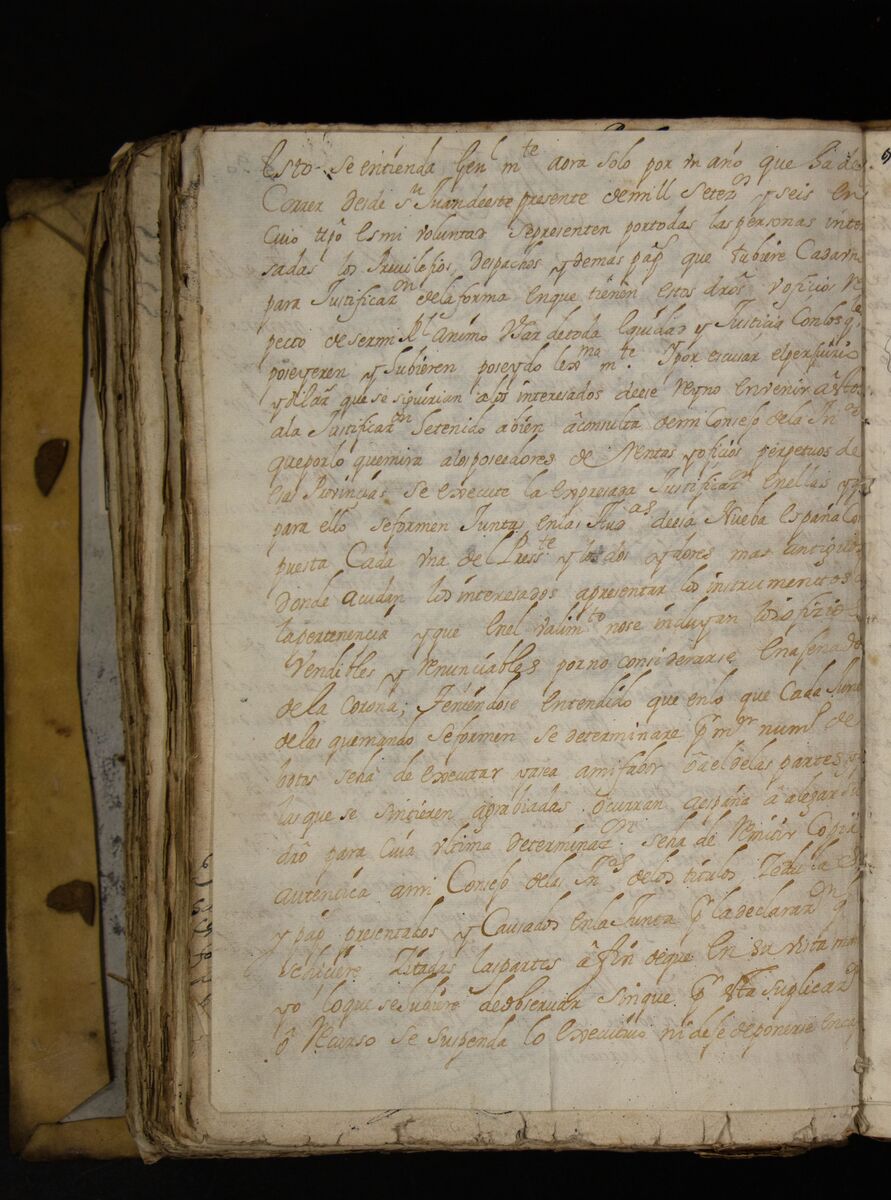 Esto se entienda Genl mte aora solo por un año que ha de
Correr desde Sn Juan de este presente de mill setezs y seis en
Cuio tipo es mi voluntad se presenten por todas las personas intere
sadas los Previlejios, Despachos y demas paps que tubiere Cada vn
para Justificazon de la forma en que tienen estos dros y oficios Res
pecto de ser mi Rl animo Vsar de toda equidad y Justicia con los qe
poseyeren y hubieren poseydo lexma mte. Y por escusar el perjuizio
y que se siguirian a los interesados de ese Reyno en venir a esta
a la Justificazon he tenido a bien a consulta de mi Consejo de la
que por lo que mira a los poseedores de Rentas y oficios perpetuos de
esas Provincias se execute la expresada Justificazon en ellas y
para ello se formen Juntas en las Audas de esa Nueba España Com
puesta Cada vna de el Presste y los dos oydores mas antiguos
Donde acudan los interesados a presentar los instrumentos de
la pertenencia y que en el valimto no se incluyan los ofizios
Vendibles y renunciables por no considerarse enajenados
de la Corona; Teniendose entendido que en lo que Cada Junta
de las que mando se formen se determinare pr mor numo de
botos se ha de executar ya sea a mi fabor o a el de las partes y
las que se sintieren agrabiadas ocurran a españa a alegar su
dro para Cuia vltima determinazon se ha de Remitir Copia
autentica a mi Consejo de las Inas de los titulos Zedulas
y paps presentados y Causados en la Junta pr la declarazon q
se hiciere Zitadas las partes a fin de que en su vista man
yo lo que se hubiere de observar sin que pr esta suplicazon
o Recurso se suspenda lo executivo ni deje de ponerse en ca